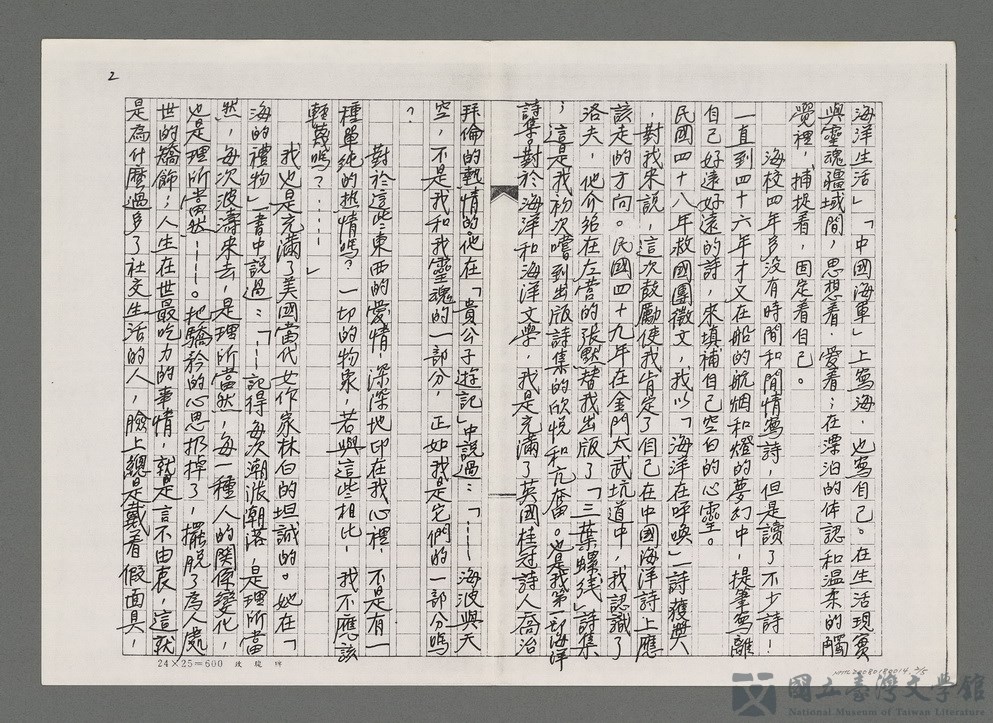 海洋生活」「中國海軍」上寫海，也寫自己。在生活現實
與靈魂疆域間，思想着，愛着；在漂泊的体認和温柔的觸
覺裡，捕捉着，固定着自己。
海校四年多沒有時間和閒情寫詩，但是讀了不少詩！
一直到四十六年才又在船的航烟和燈的夢幻中，提筆寫離
自己好遠好遠的詩，來填補自己空白的心靈。
民國四十八年救國團徵文，我以「海洋在呼喚」一詩獲獎
，對我來說，這次鼓勵使我肯定了自己在中國海洋詩上應
該走的方向。民國四十九年在金門太武坑道中，我認識了
洛夫，他介紹在左營的張默替我出版了「三葉螺线」詩集
；這是我初次嚐到出版詩集的欣悅和亢奮。也是我第一部海洋
詩集對於海洋和海洋文學，我是充滿了英國桂冠詩人喬治
拜倫的熱情的。他在「貴公子遊記」中說過：「……海波與天
空，不是我和我靈魂的一部分，正如我是它們的一部分嗎
？
對於這些東西的愛情，深深地印在我心裡，不是有一
種單純的热情嗎？一切的物象，若與這些相比，我不應該
輕蔑嗎？……」
我也是充滿了美國當代女作家林白的坦誠的。她在「
海的禮物」書中說過：「……記得每次潮漲潮落，是理所當
然，每次波濤來去，是理所當然，每一種人的関係變化，
也是理所當然……。把驕矜的心思扔掉了，擺脫了為人處
世的矯飾；人生在世最吃力的事情，就是言不由衷，這就
是為什麼過多了社交生活的人，臉上總是戴着假面具，
2
24×25=600
NMTL20080180014 2/5
國立臺灣文學館
National Museum of Taiwan Literature